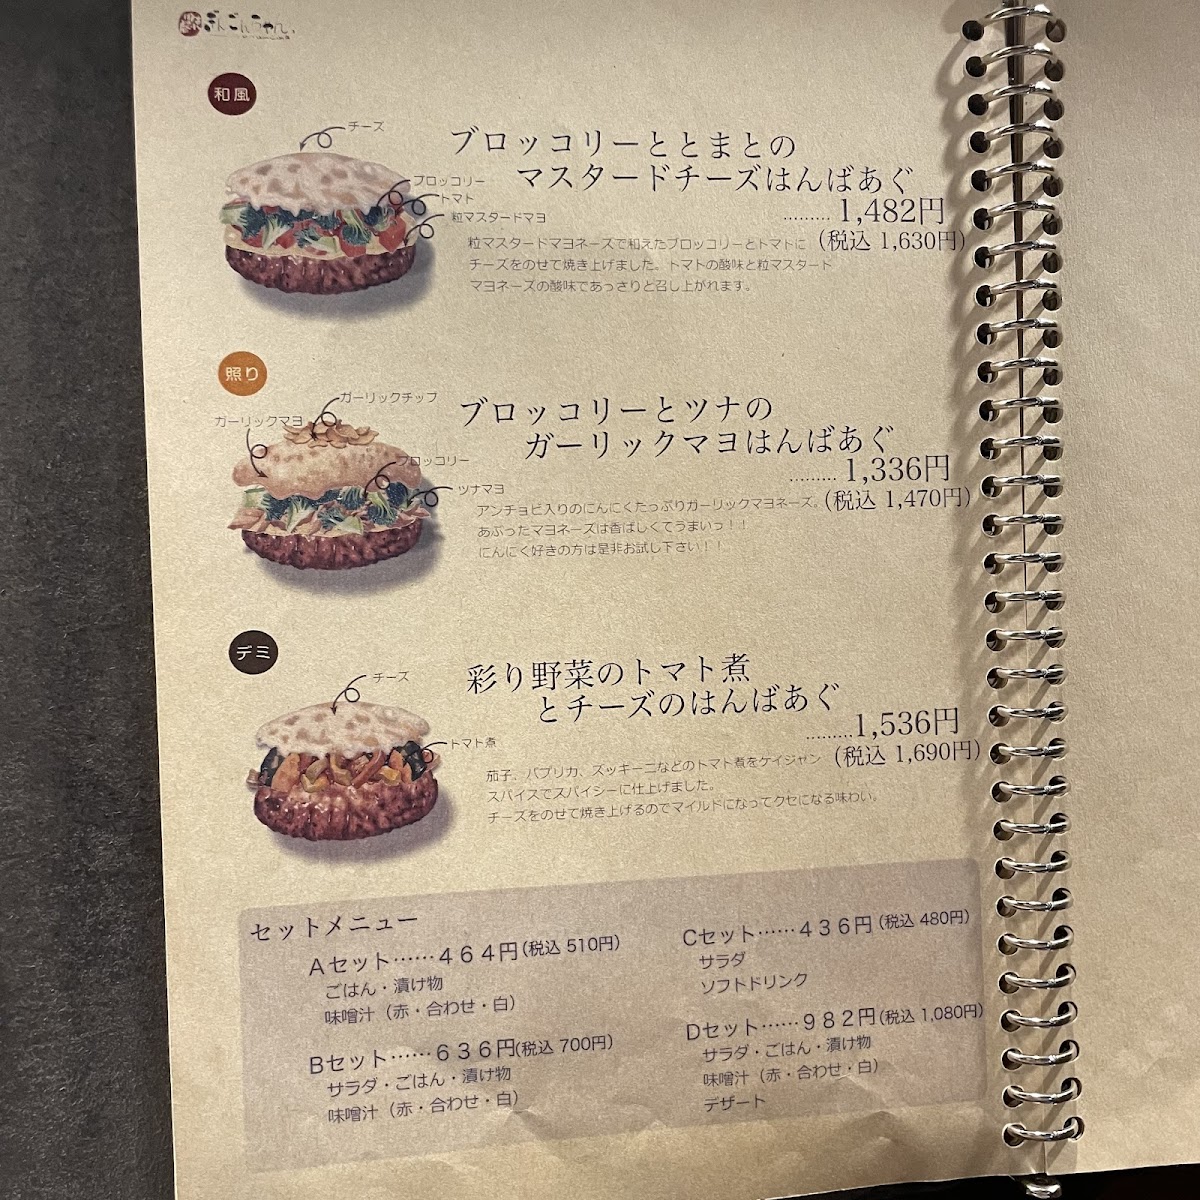 ぎんごんちゃん。
和風
チーズ
ブロッコリー
トマト
粒マスタードマヨ
ブロッコリーととまとの
マスタードチーズはんばあぐ
………1,482円
(税込 1,630円)
粒マスタードマヨネーズで和えたブロッコリーとトマトに
チーズをのせて焼き上げました。トマトの酸味と粒マスタード
マヨネーズの酸味であっさりと召し上がれます。
照り
ガーリックチップ
ガーリックマヨ
ブロッコリー
ツナマヨ
ブロッコリーとツナの
ガーリックマヨはんばあぐ
………1,336円
(税込 1,470円)
アンチョビ入りのにんにくたっぷりガーリックマヨネーズ。
あぶったマヨネーズは香ばしくてうまいっ！！
にんにく好きの方は是非お試し下さい！！
デミ
チーズ
トマト煮
彩り野菜のトマト煮
とチーズのはんばあぐ
………1,536円
(税込 1,690円)
茄子、パプリカ、ズッキーニなどのトマト煮をケイジャン
スパイスでスパイシーに仕上げました。
チーズをのせて焼き上げるのでマイルドになってクセになる味わい。
セットメニュー
Aセット……464円(税込 510円)
ごはん・漬け物
味噌汁（赤・合わせ・白）
Bセット……636円(税込 700円)
サラダ・ごはん・漬け物
味噌汁（赤・合わせ・白）
Cセット……436円(税込 480円)
サラダ
ソフトドリンク
Dセット……982円(税込 1,080円)
サラダ・ごはん・漬け物
味噌汁（赤・合わせ・白）
デザート